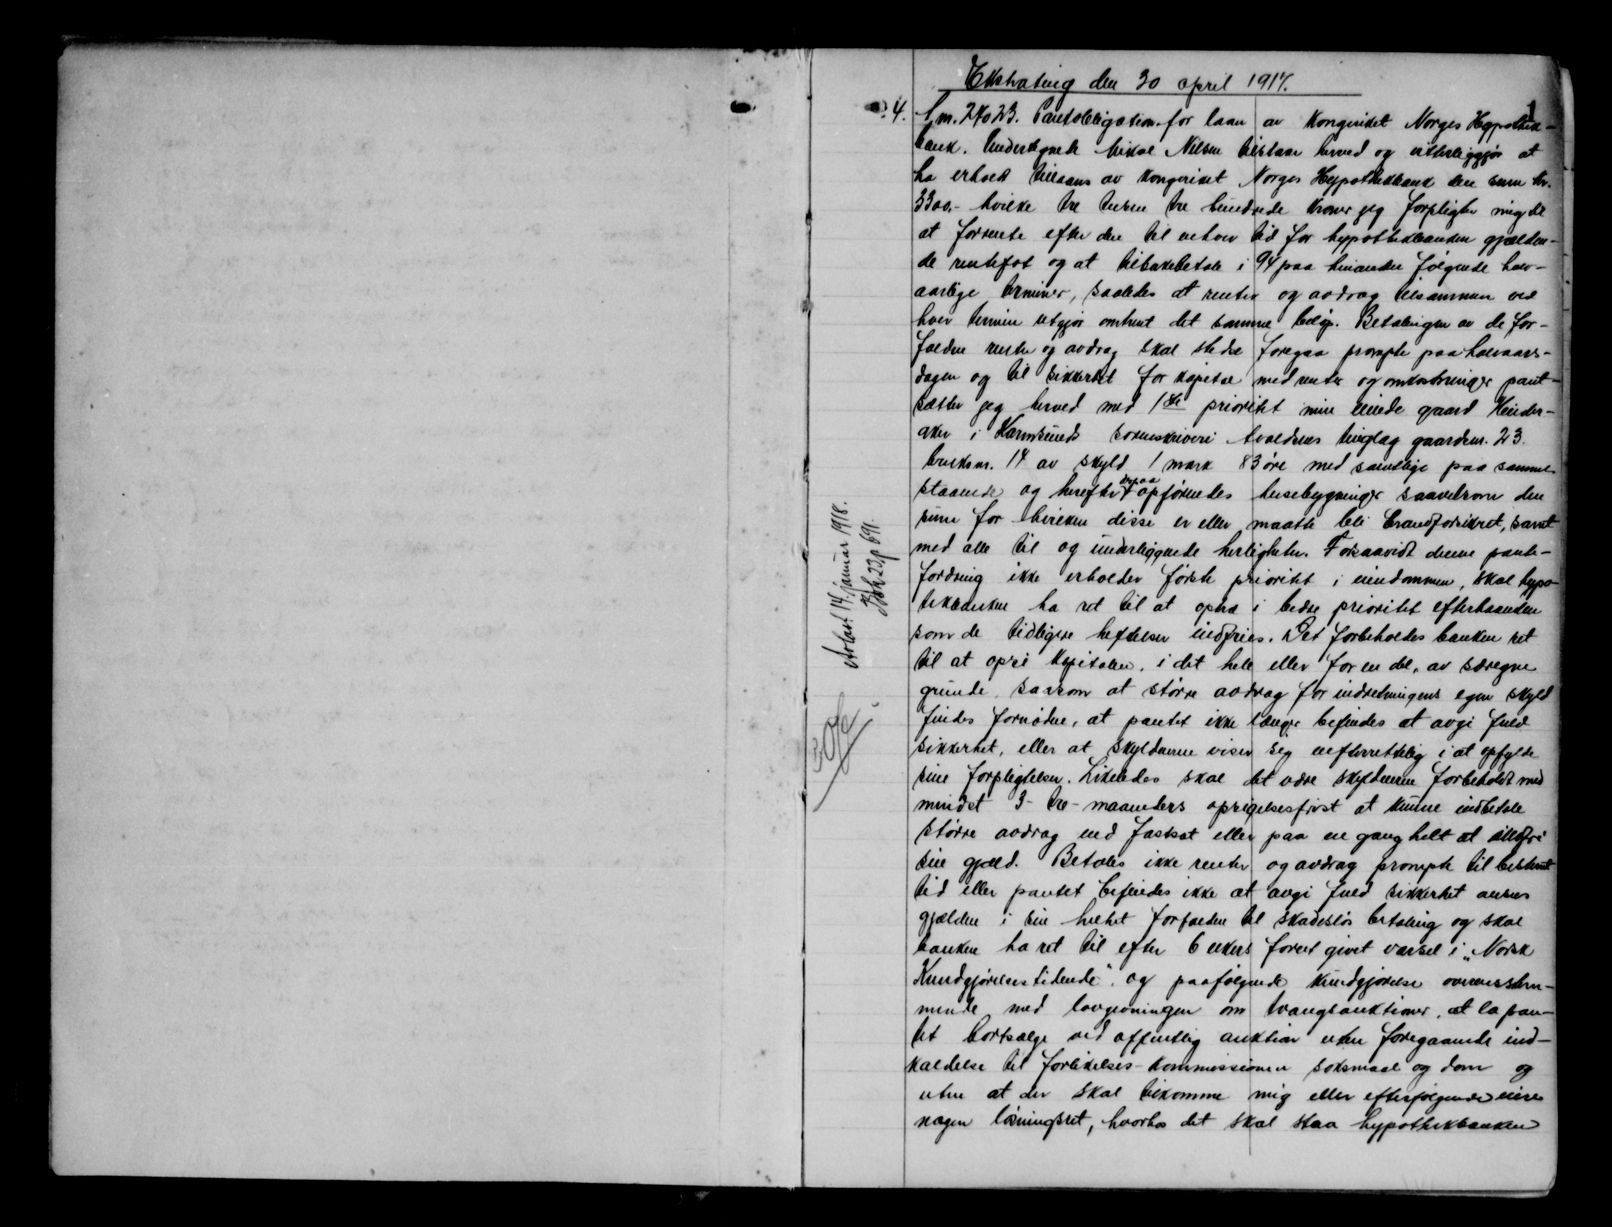 Ekstrating den 30 april 1917.
1
4. Lnr. 24023. Pantobligation for laan av Kongeriket Norges Hypothek-
bank. Undertegnede Mikal Nilsen tilstaar herved og vitterliggjør at
ha erholdt tillaans av Kongeriket Norges Hypothekbank den sum kr.
3300,- hvilke tre tusen tre hundrede kroner jeg forpligter mig til
at forrente efter den til enhver tid for hypothekbanken gjælden-
de rentefot og at tilbakebetale i 94 paa hinanden følgende halv-
aarlige terminer, saaledes at renter og avdrag tilsammen ved
hver termin utgjør omtrent det samme beløp. Betalingen av de for-
faldne renter og avdrag skal stedse foregaa prompte paa halvaars-
dagen og til sikkerhet for kapital med renter og omkostninger pant-
sætter jeg herved med 1ste prioritet min eiende gaard Hinder-
aker i Karmsund sorenskriveri Avaldsnes tinglag gaardsnr. 23
bruksnr. 14 av skyld 1 mark 83 øre med samtlige paa samme
staaende og herefter derpaa opførendes husebygninger saavelsom den
sum for hvilken disse er eller maatte bli brandforsikret, samt
med alle til og underliggende herligheter. Forsaavidt denne pante-
fordring ikke erholder første prioritet i eiendommen, skal hypo-
tekbanken ha ret til at optræ i bedre prioritet efterhaanden
som de tidligere heftelser indfries. Det forbeholdes banken ret
til at opsi kapitalen, i det hele eller for en del, av særegne
grunde, saasom at større avdrag for indretningens egen skyld
findes fornødne, at pantet ikke længer befindes at avgi fuld
sikkerhet, eller at skyldneren viser seg uefterrettelig i at opfylde
sine forpligtelser. Likeledes skal det være skyldneren forbeholdt med
mindst 3- tre- maaneders opsigelsesfrist at kunne indbetale
større avdrag end fastsat eller paa en gang helt at indfri
sin gjæld. Betales ikke renter og avdrag prompte til bestemt
tid eller pantet befindes ikke at avgi fuld sikkerhet ansees
gjælden i sin helhet forfalden til skadesløs betaling og skal
banken ha ret til efter 6 ukers forut givet varsel i "Norsk
Kundgjørelsestidende" og paafølgende kundgjørelse overensstem-
mende med lovgivningen om tvangsauktioner, at la pan-
tet bortsælge ved offentlig auktion uten foregaaende ind-
kaldelse til forlikelses-kommissionen søksmaal og dom og
uten at der skal tilkomme mig eller efterfølgende eiere
nogen løsningsret, hvorhos det skal staa hypothekbanken
Avlest 14. januar 1918.
Pbk 23 p 691.